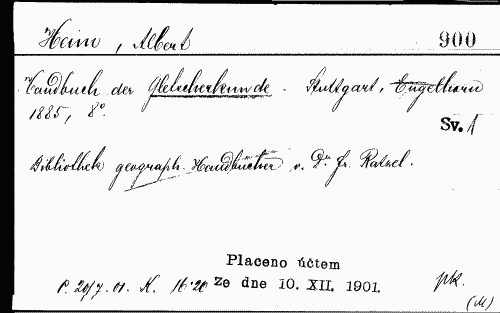 Heim, Albert 900
Handbuch der Gletscherkunde. Stuttgart, Engelhorn
1885, 8°.
Sv. 1
Bibliothek geograph. Handbücher v. Dr. Fr. Ratzel.
Placeno účtem
P. 20/7. 01. K. 16·20 Ze dne 10. XII. 1901. pk.
(M)